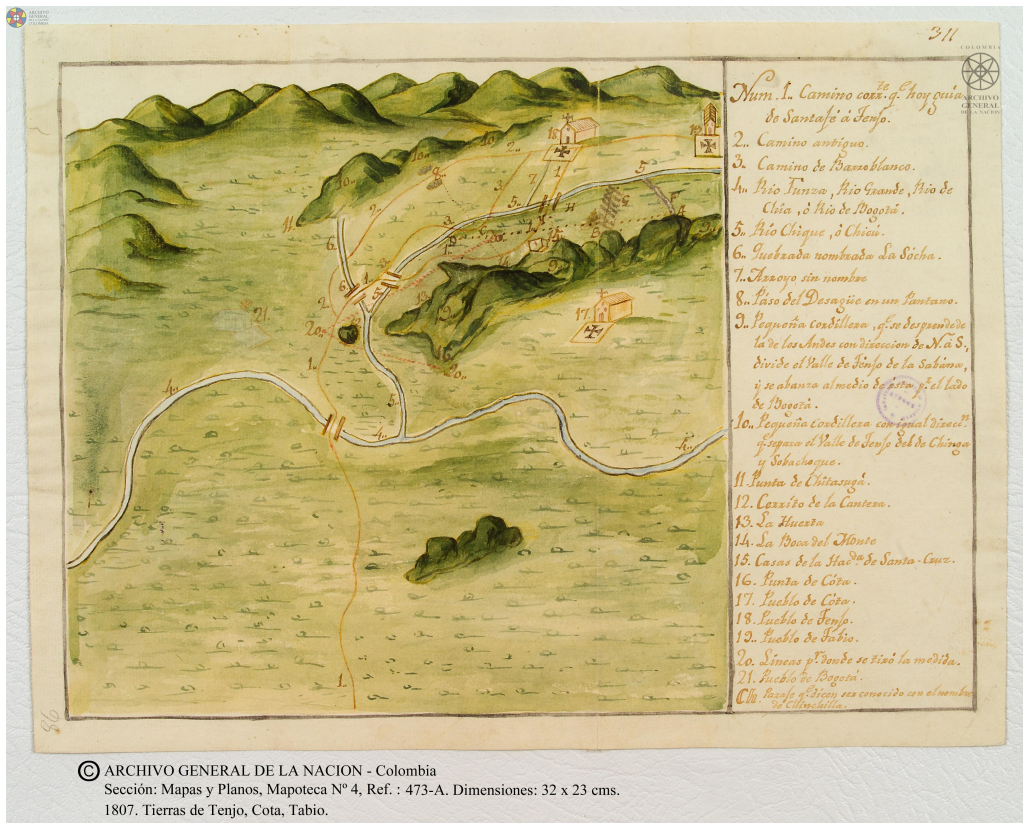 ARCHIVO
GENERAL
COLOMBIA
311
COLOMBIA
ARCHIVO
GENERAL
DE LA NACION
Num. 1.. Camino corr.te q.e hoy guia
de Santafé á Tenjo.
2.. Camino antiguo.
3.. Camino de Barroblanco.
4.. Rio Tunza, Rio Grande, Rio de
Chia, ò Rio de Bogotá.
5.. Rio Chique, ò Chicú.
6.. Quebrada nombrada La Sócha.
7.. Arroyo sin nombre
8.. Páso del Desagüe en un Pantano.
9.. Pequeña cordillera, q.e se desprende de
la de los Andes con direccion de N. á S.,
divide el Valle de Tenjo de la Sabána,
y se abanza al medio de esta p.r el lado
de Bogotá.
10.. Pequeña cordillera con igual direcc.n
q.e separa el Valle de Tenjo del de Chinga
y Sobachoque.
11. Punta de Chitasugá.
12. Cerrito de la Cantera.
13. La Huerta
14. La Boca del Monte
15. Casas de la Hac.da de Santa-Cruz.
16. Punta de Cóta.
17. Pueblo de Cóta.
18. Pueblo de Tenjo.
19.. Pueblo de Tabio.
20. Lineas p.r donde se tiró la medida.
21. Pueblo de Bogotá.
Paraje q.e dicen ser conocido con el nombre
de Chinchilla.
19
18
10
10..
10..
2..
7
1
3
5
8..
2..
11..
6..
3..
5..
9..
6
1
2
5
21..
20..
1..
17..
16
20..
4..
5..
4..
4..
1..
86
© ARCHIVO GENERAL DE LA NACION - Colombia
Sección: Mapas y Planos, Mapoteca Nº 4, Ref. : 473-A. Dimensiones: 32 x 23 cms.
1807. Tierras de Tenjo, Cota, Tabio.